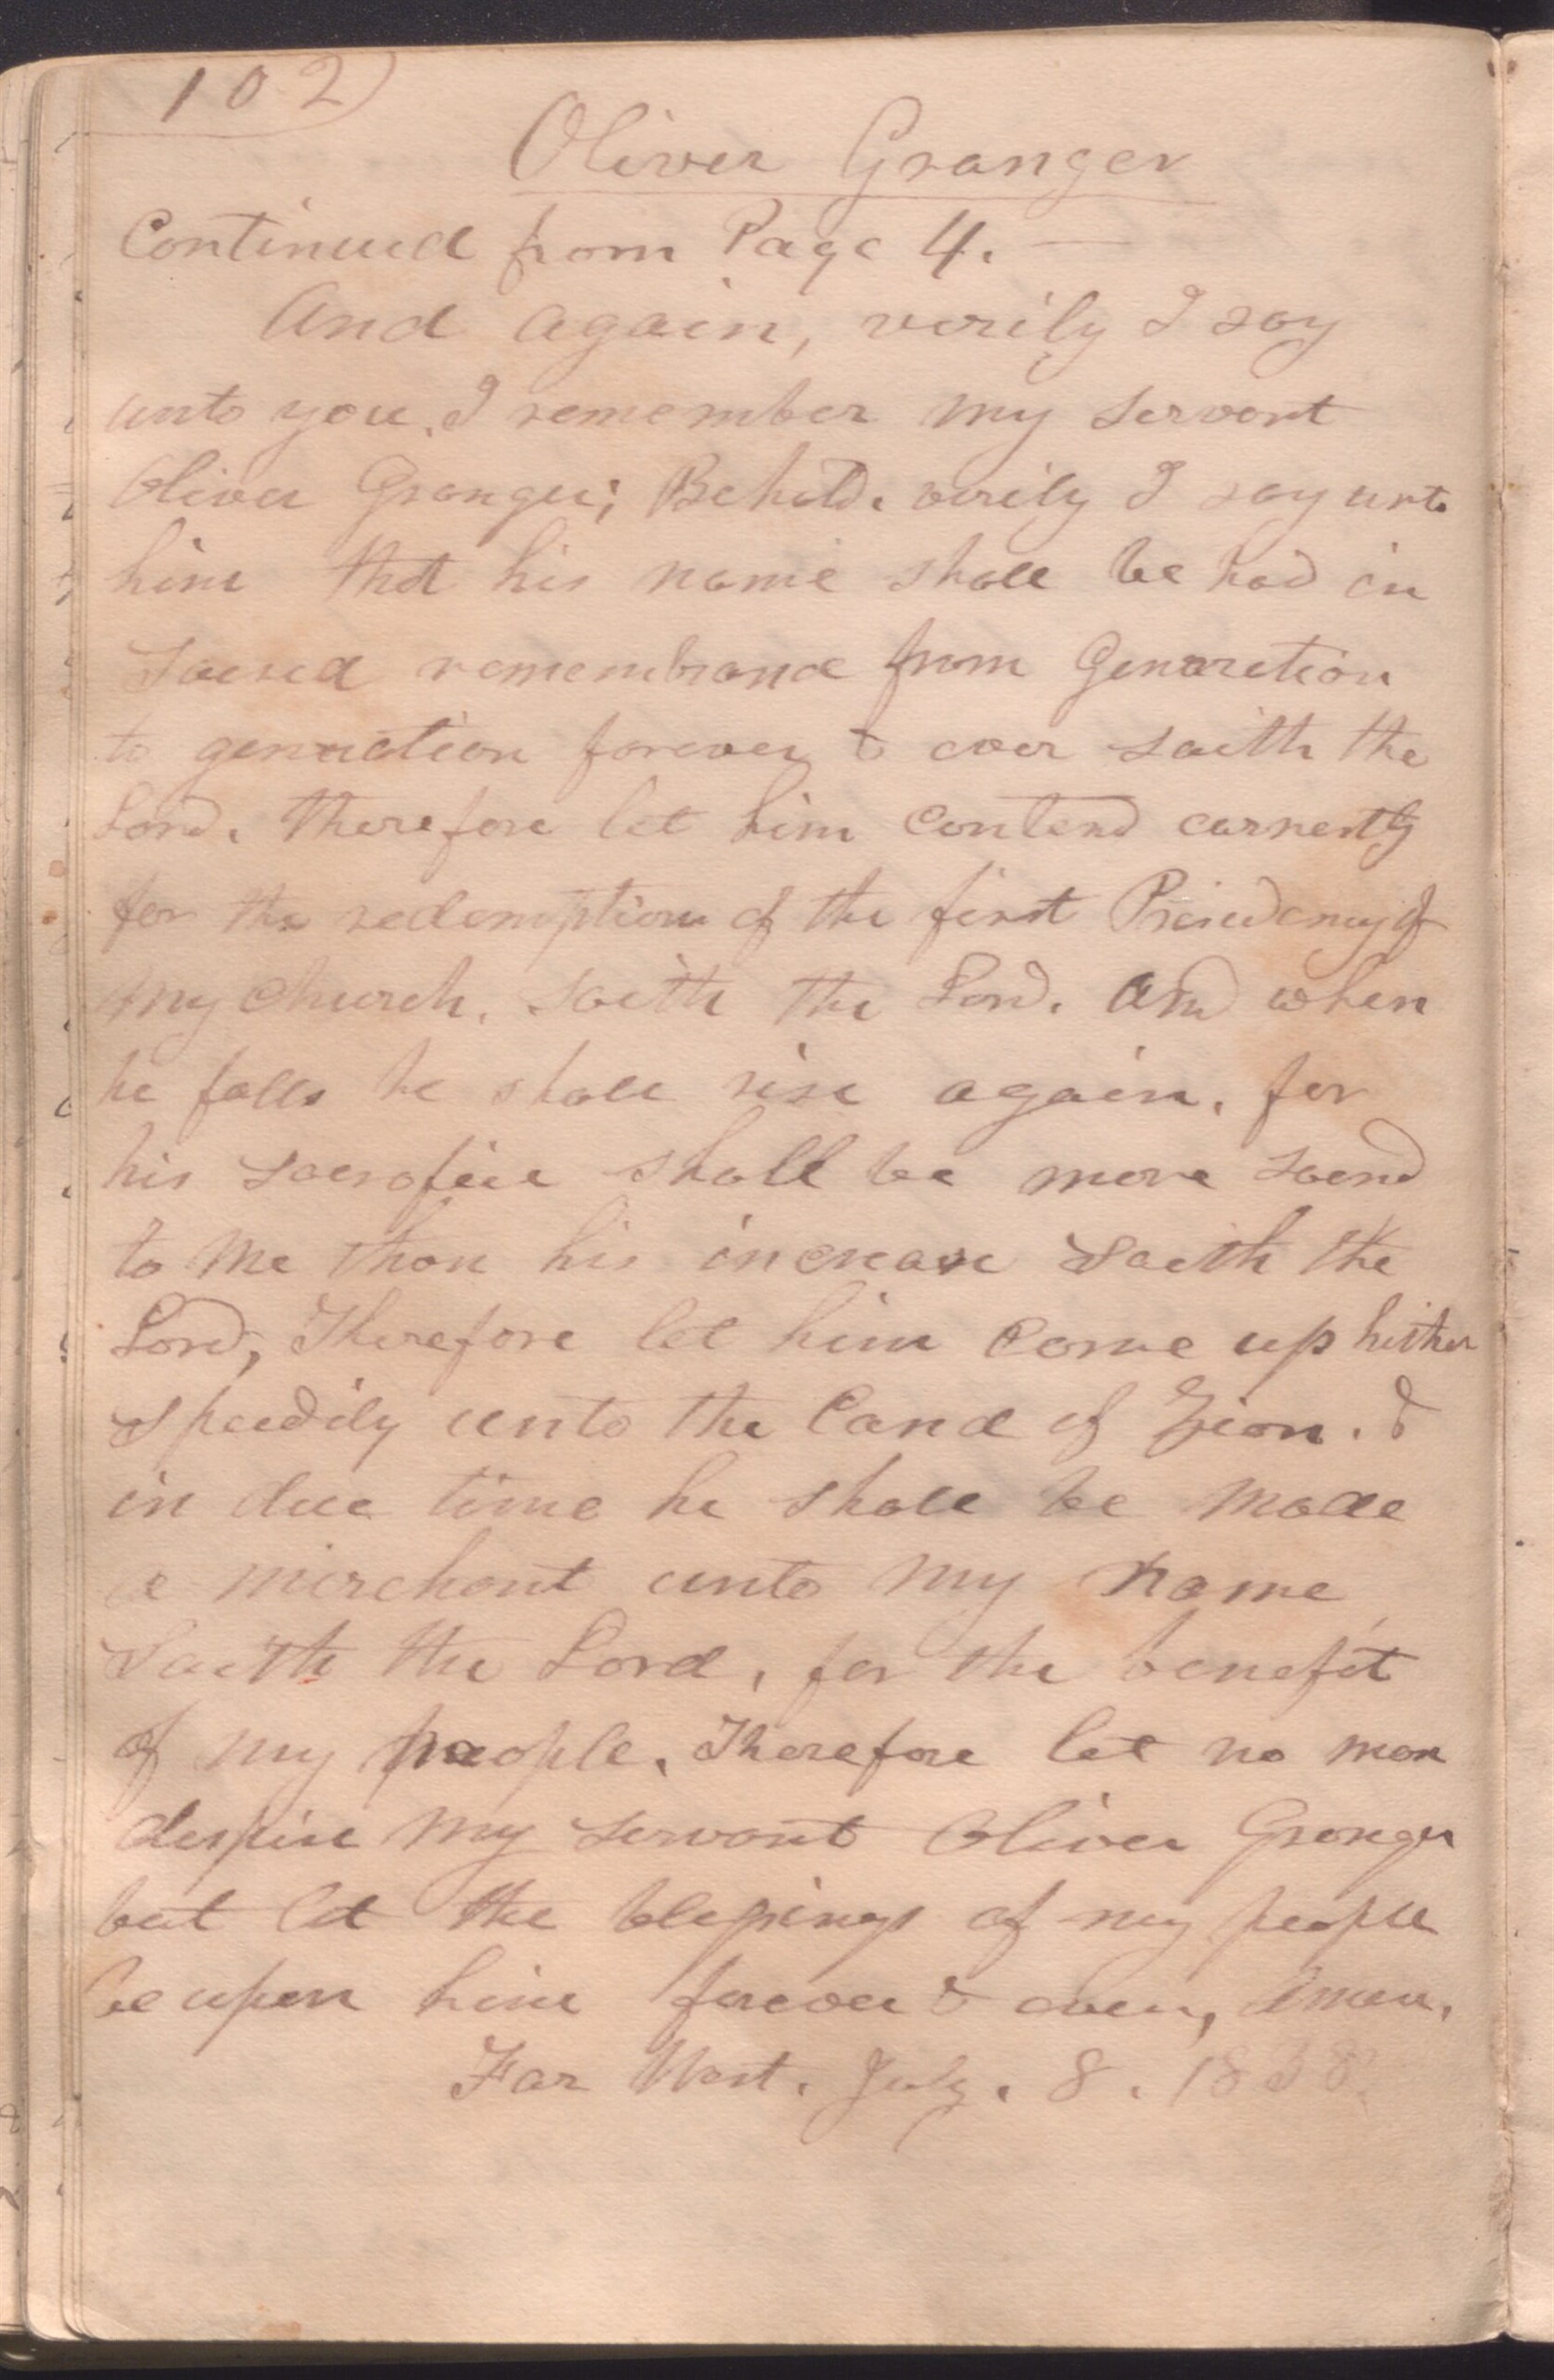 102)
Oliver Granger
Continued from Page 4. —
And again, verily I say
unto you, I remember my servant
Oliver Granger; Behold, verily I say unto
him that his name shall be had in
sacred remembrance from Generation
to generation forever & ever saith the
Lord. therefore let him contend earnestly
for the redemption of the first Presidency of
my church, saith the Lord. And when
he falls he shall rise again, for
his sacrafice shall be more sacred
to me than his increase saith the
Lord, Therefore let him come up hither
speedily unto the land of Zion. &
in due time he shall be made
a merchant unto my name,
Saith the Lord, for the benefit
of my people. Therefore let no man
despise my servant Oliver Granger
but let the blessings of my people
be upon him forever & ever, Amen.
Far West. July. 8. 1838.